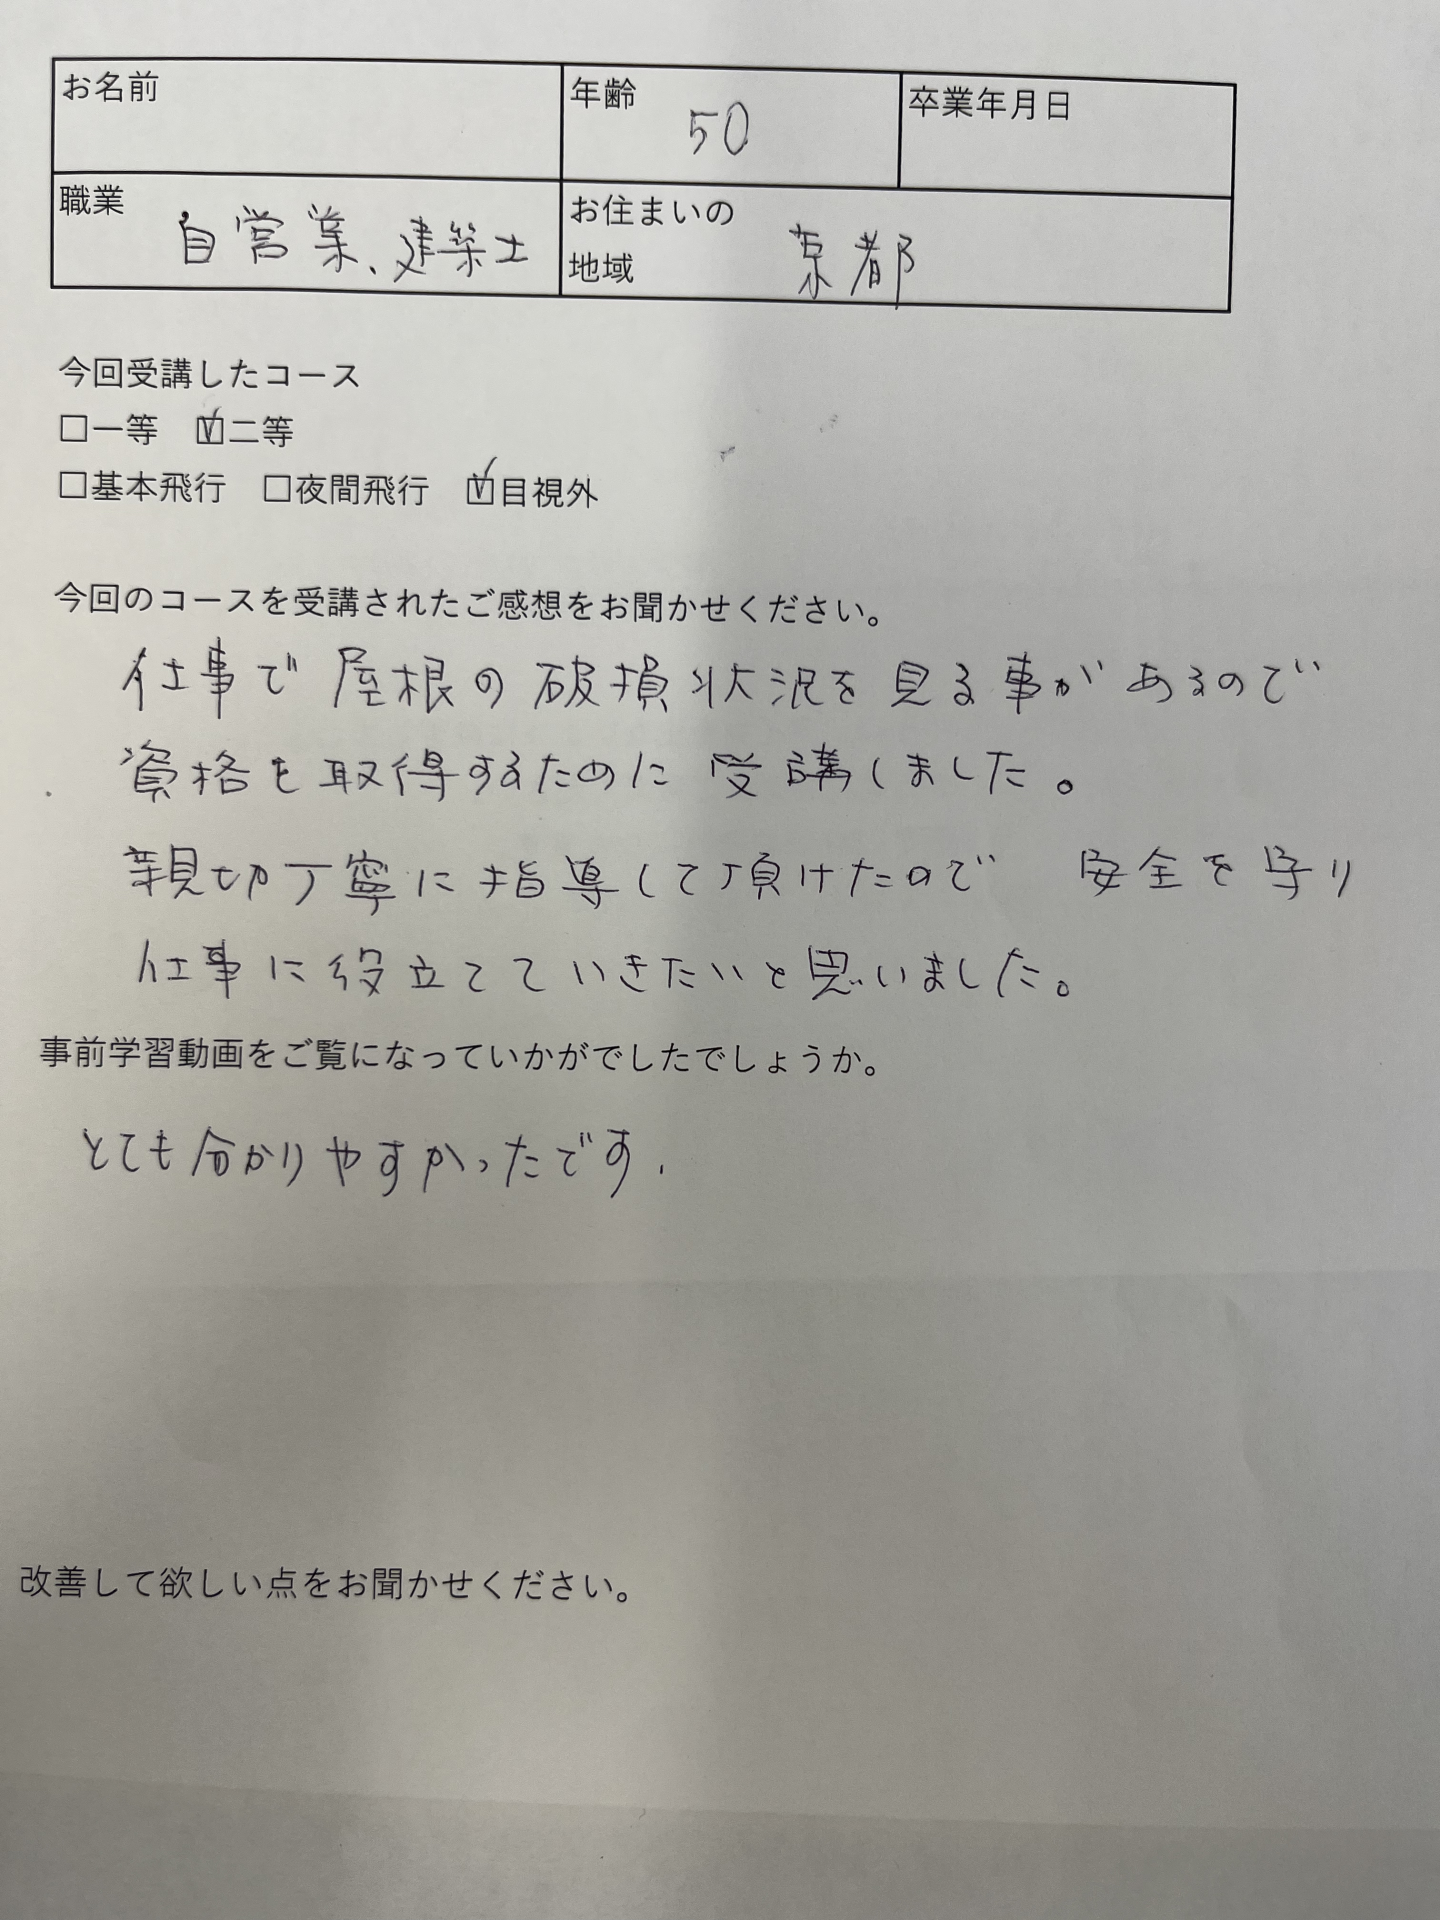 お名前
年齢 50
卒業年月日
職業 自営業、建築士
お住まいの
地域 京都
今回受講したコース
□一等 ☑二等
□基本飛行 □夜間飛行 ☑目視外
今回のコースを受講されたご感想をお聞かせください。
仕事で屋根の破損状況を見る事があるので
資格を取得するために受講しました。
親切丁寧に指導して頂けたので 安全を守り
仕事に役立てていきたいと思いました。
事前学習動画をご覧になっていかがでしたでしょうか。
とても分かりやすかったです.
改善して欲しい点をお聞かせください。